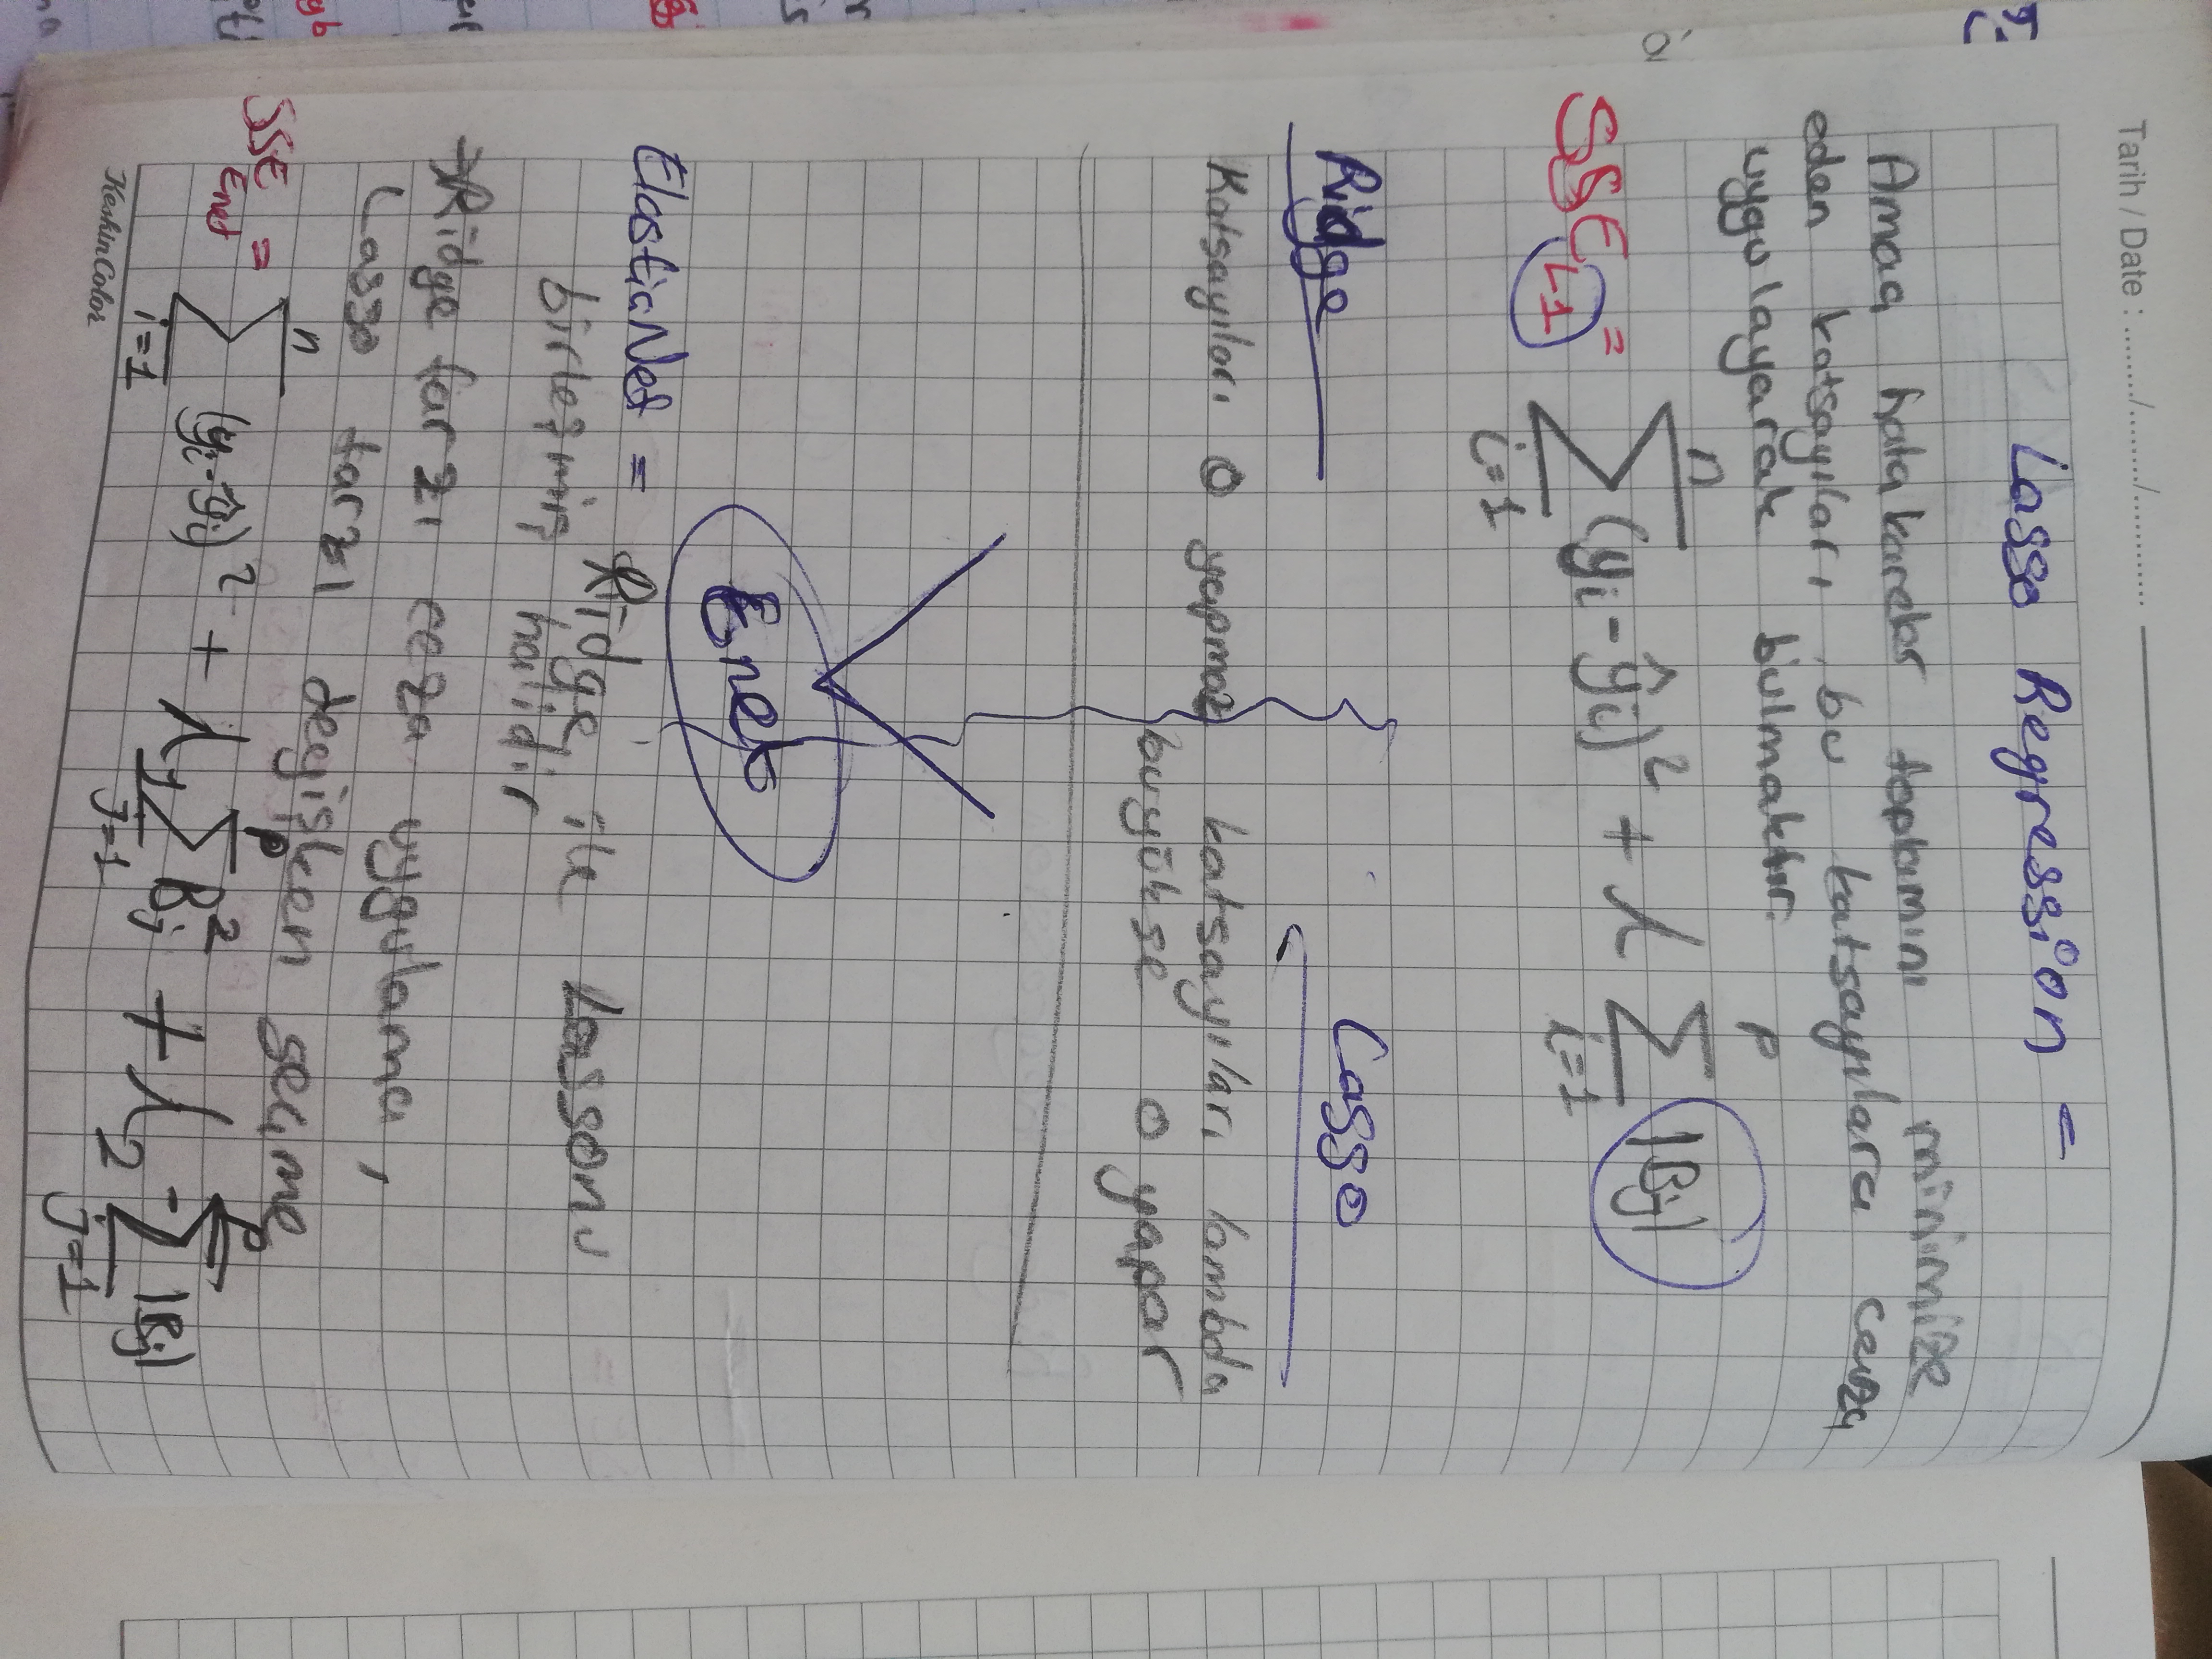 Tarih / Date : ......../......../............
Lasso Regression =
Amaç hata kareler toplamını minimize
eden katsayıları, bu katsayılara ceza
uygulayarak bulmaktır.
SSE_L1 = n∑i=1 (yi - ŷi)² + λ p∑i=1 |Bj|
Ridge
Katsayıları 0 yapmaz
Lasso
katsayıları lambda
buyükse 0 yapar
Enet
ElasticNet = Ridge ile Lassonu
birleşmiş halidir
→Ridge tarzı ceza uygulama,
Lasso tarzı değişken seçme
SSE_Enet = n∑i=1 (yi - ŷi)² + λ1 p∑j=1 Bj² + λ2 p∑j=1 |Bj|
KeskinColor